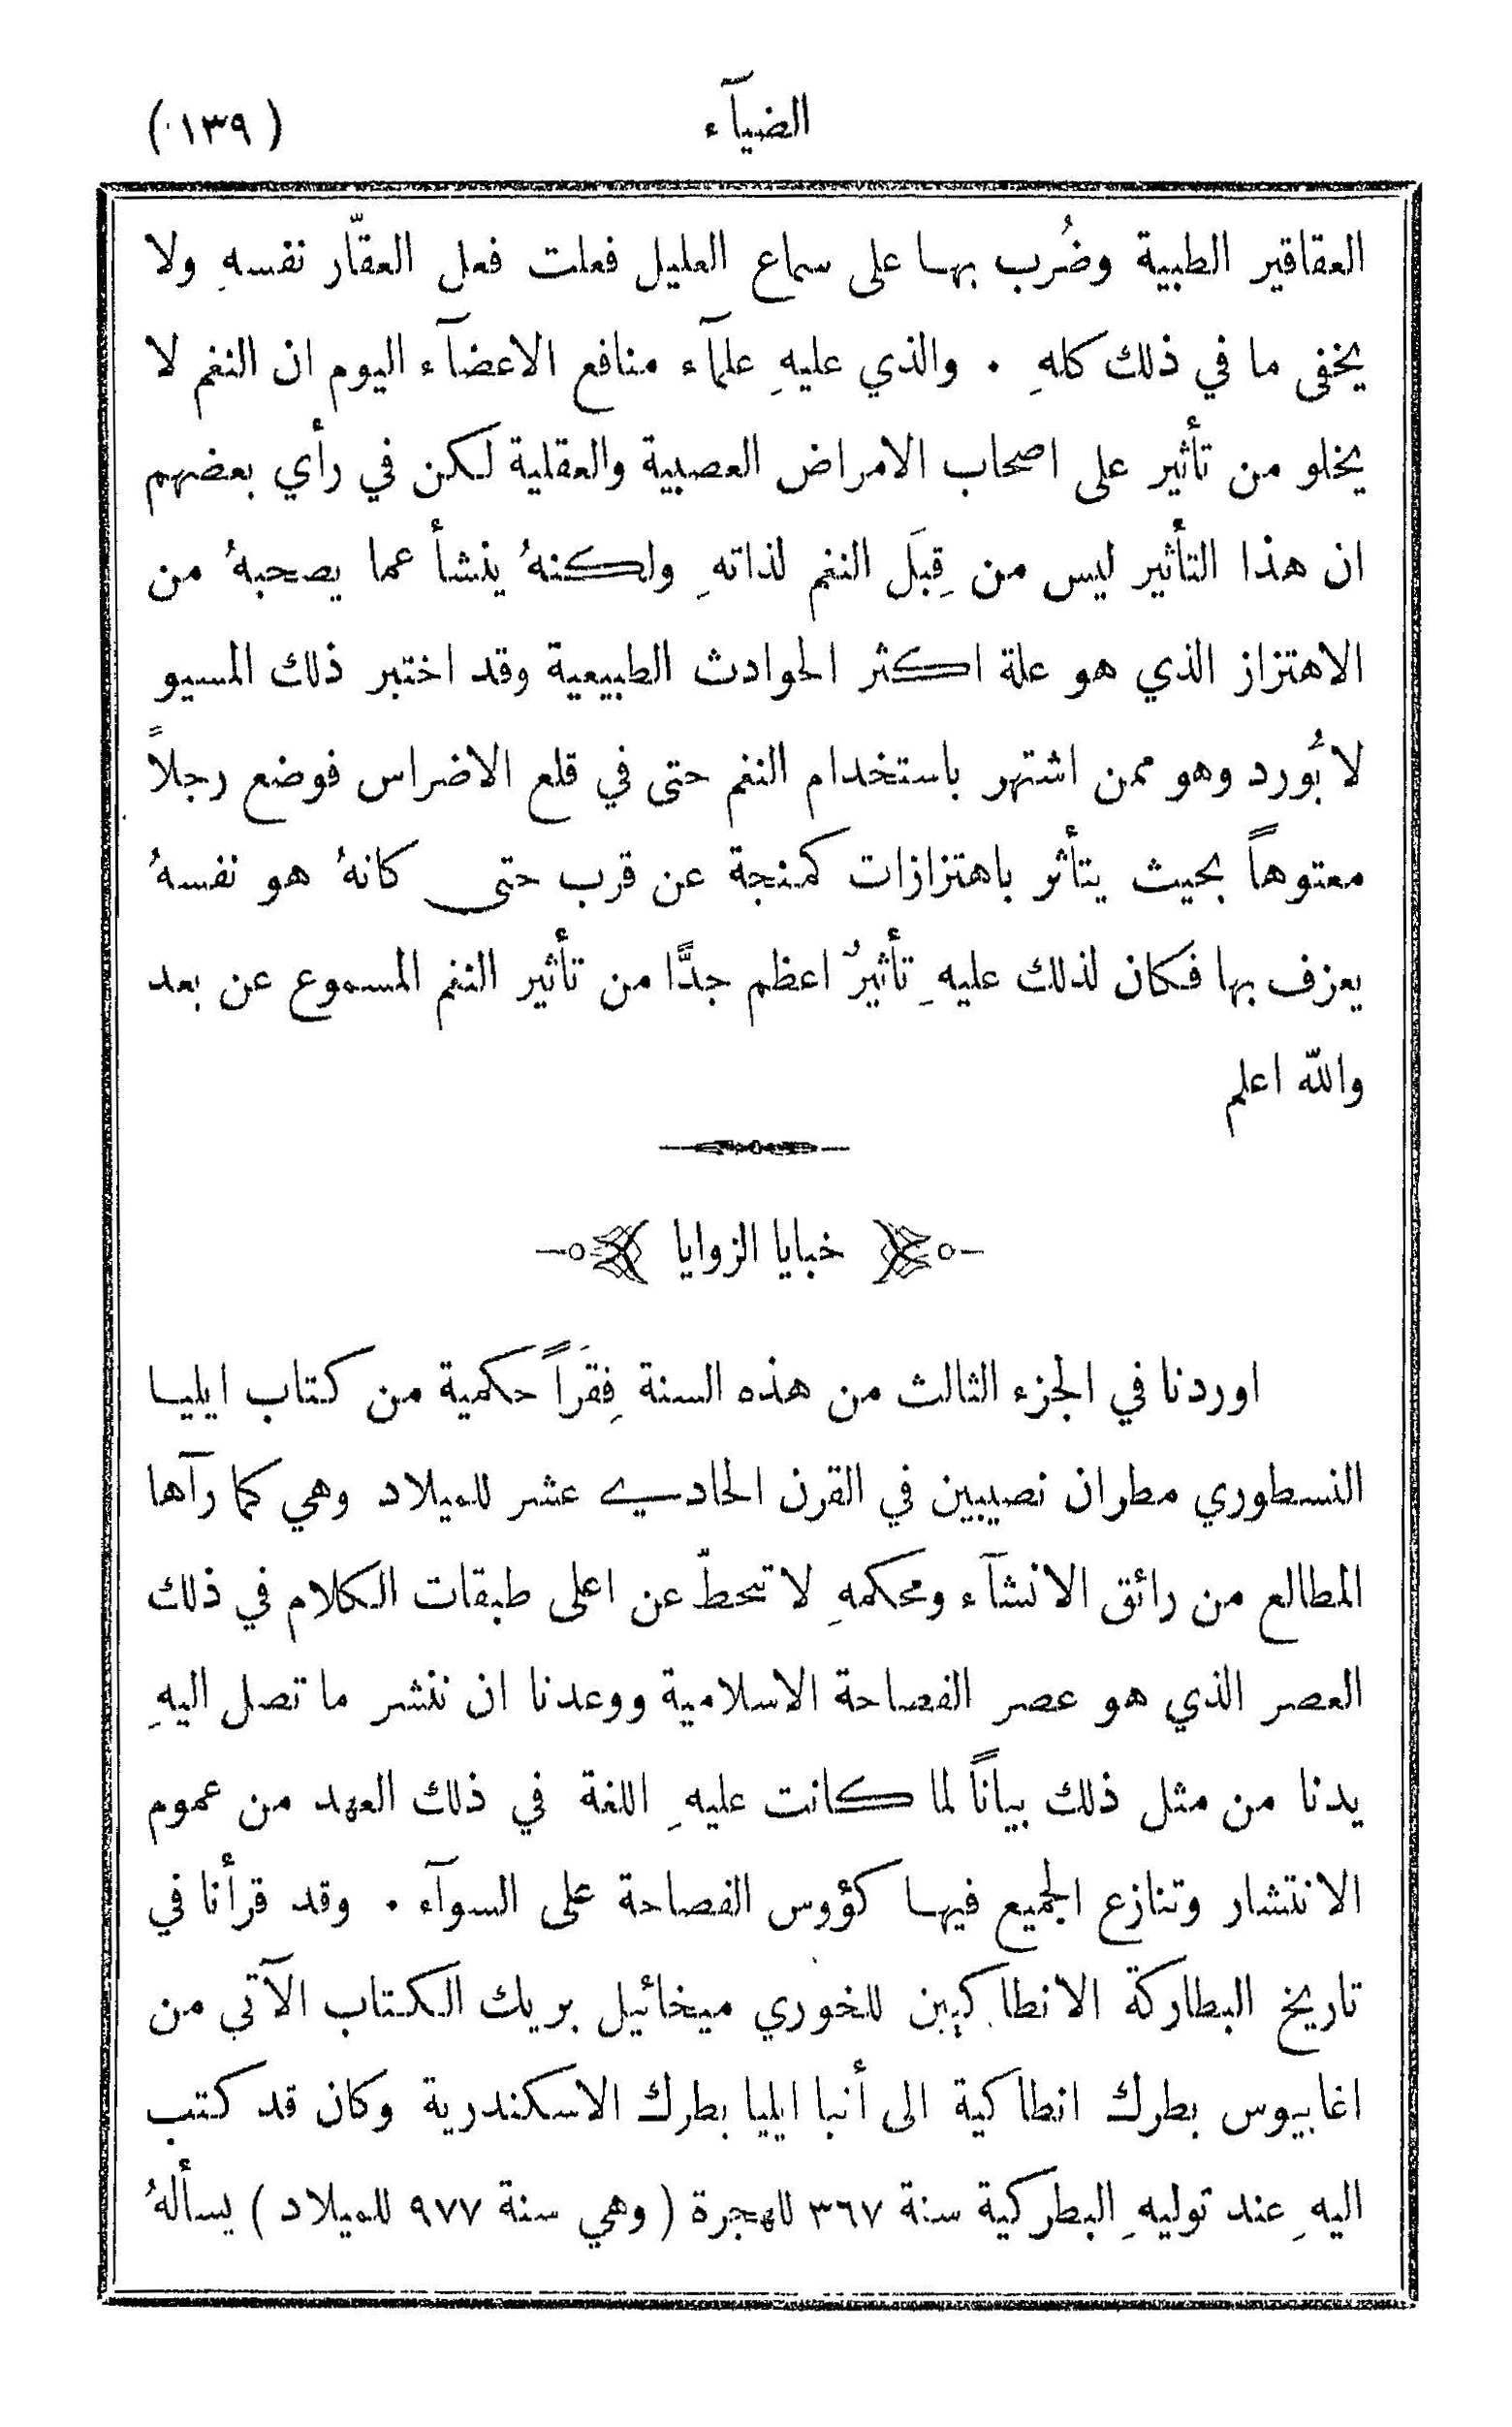 الضيآء
(١٣٩)
العقاقير الطبية وضُرب بها على سماع العليل فعلت فعل العقّار نفسهِ ولا
يخفى ما في ذلك كلهِ . والذي عليهِ علمآء منافع الاعضآء اليوم ان النغم لا
يخلو من تأثير على اصحاب الامراض العصبية والعقلية لكن في رأي بعضهم
ان هذا التأثير ليس من قِبَل النغم لذاتهِ ولكنهُ ينشأ عما يصحبهُ من
الاهتزاز الذي هو علة اكثر الحوادث الطبيعية وقد اختبر ذلك المسيو
لابُورد وهو ممن اشتهر باستخدام النغم حتى في قلع الاضراس فوضع رجلاً
معتوهاً بحيث يتأثر باهتزازات كمنجة عن قرب حتى كانهُ هو نفسهُ
يعزف بها فكان لذلك عليهِ تأثيرٌ اعظم جدًّا من تأثير النغم المسموع عن بعد
والله اعلم
خبايا الزوايا
اوردنا في الجزء الثالث من هذه السنة فِقَراً حكمية من كتاب ايليا
النسطوري مطران نصيبين في القرن الحادي عشر للميلاد وهي كما رآها
المطالع من رائق الانشآء ومحكمهِ لا تنحطّ عن اعلى طبقات الكلام في ذلك
العصر الذي هو عصر الفصاحة الاسلامية ووعدنا ان ننشر ما تصل اليهِ
يدنا من مثل ذلك بياناً لما كانت عليهِ اللغة في ذلك العهد من عموم
الانتشار وتنازع الجميع فيها كؤوس الفصاحة على السوآء . وقد قرأنا في
تاريخ البطاركة الانطاكيين للخوري ميخائيل بريك الكتاب الآتي من
اغابيوس بطرك انطاكية الى أنبا ايليا بطرك الاسكندرية وكان قد كتب
اليهِ عند توليهِ البطركية سنة ٣٦٧ للهجرة ( وهي سنة ٩٧٧ للميلاد ) يسألهُ